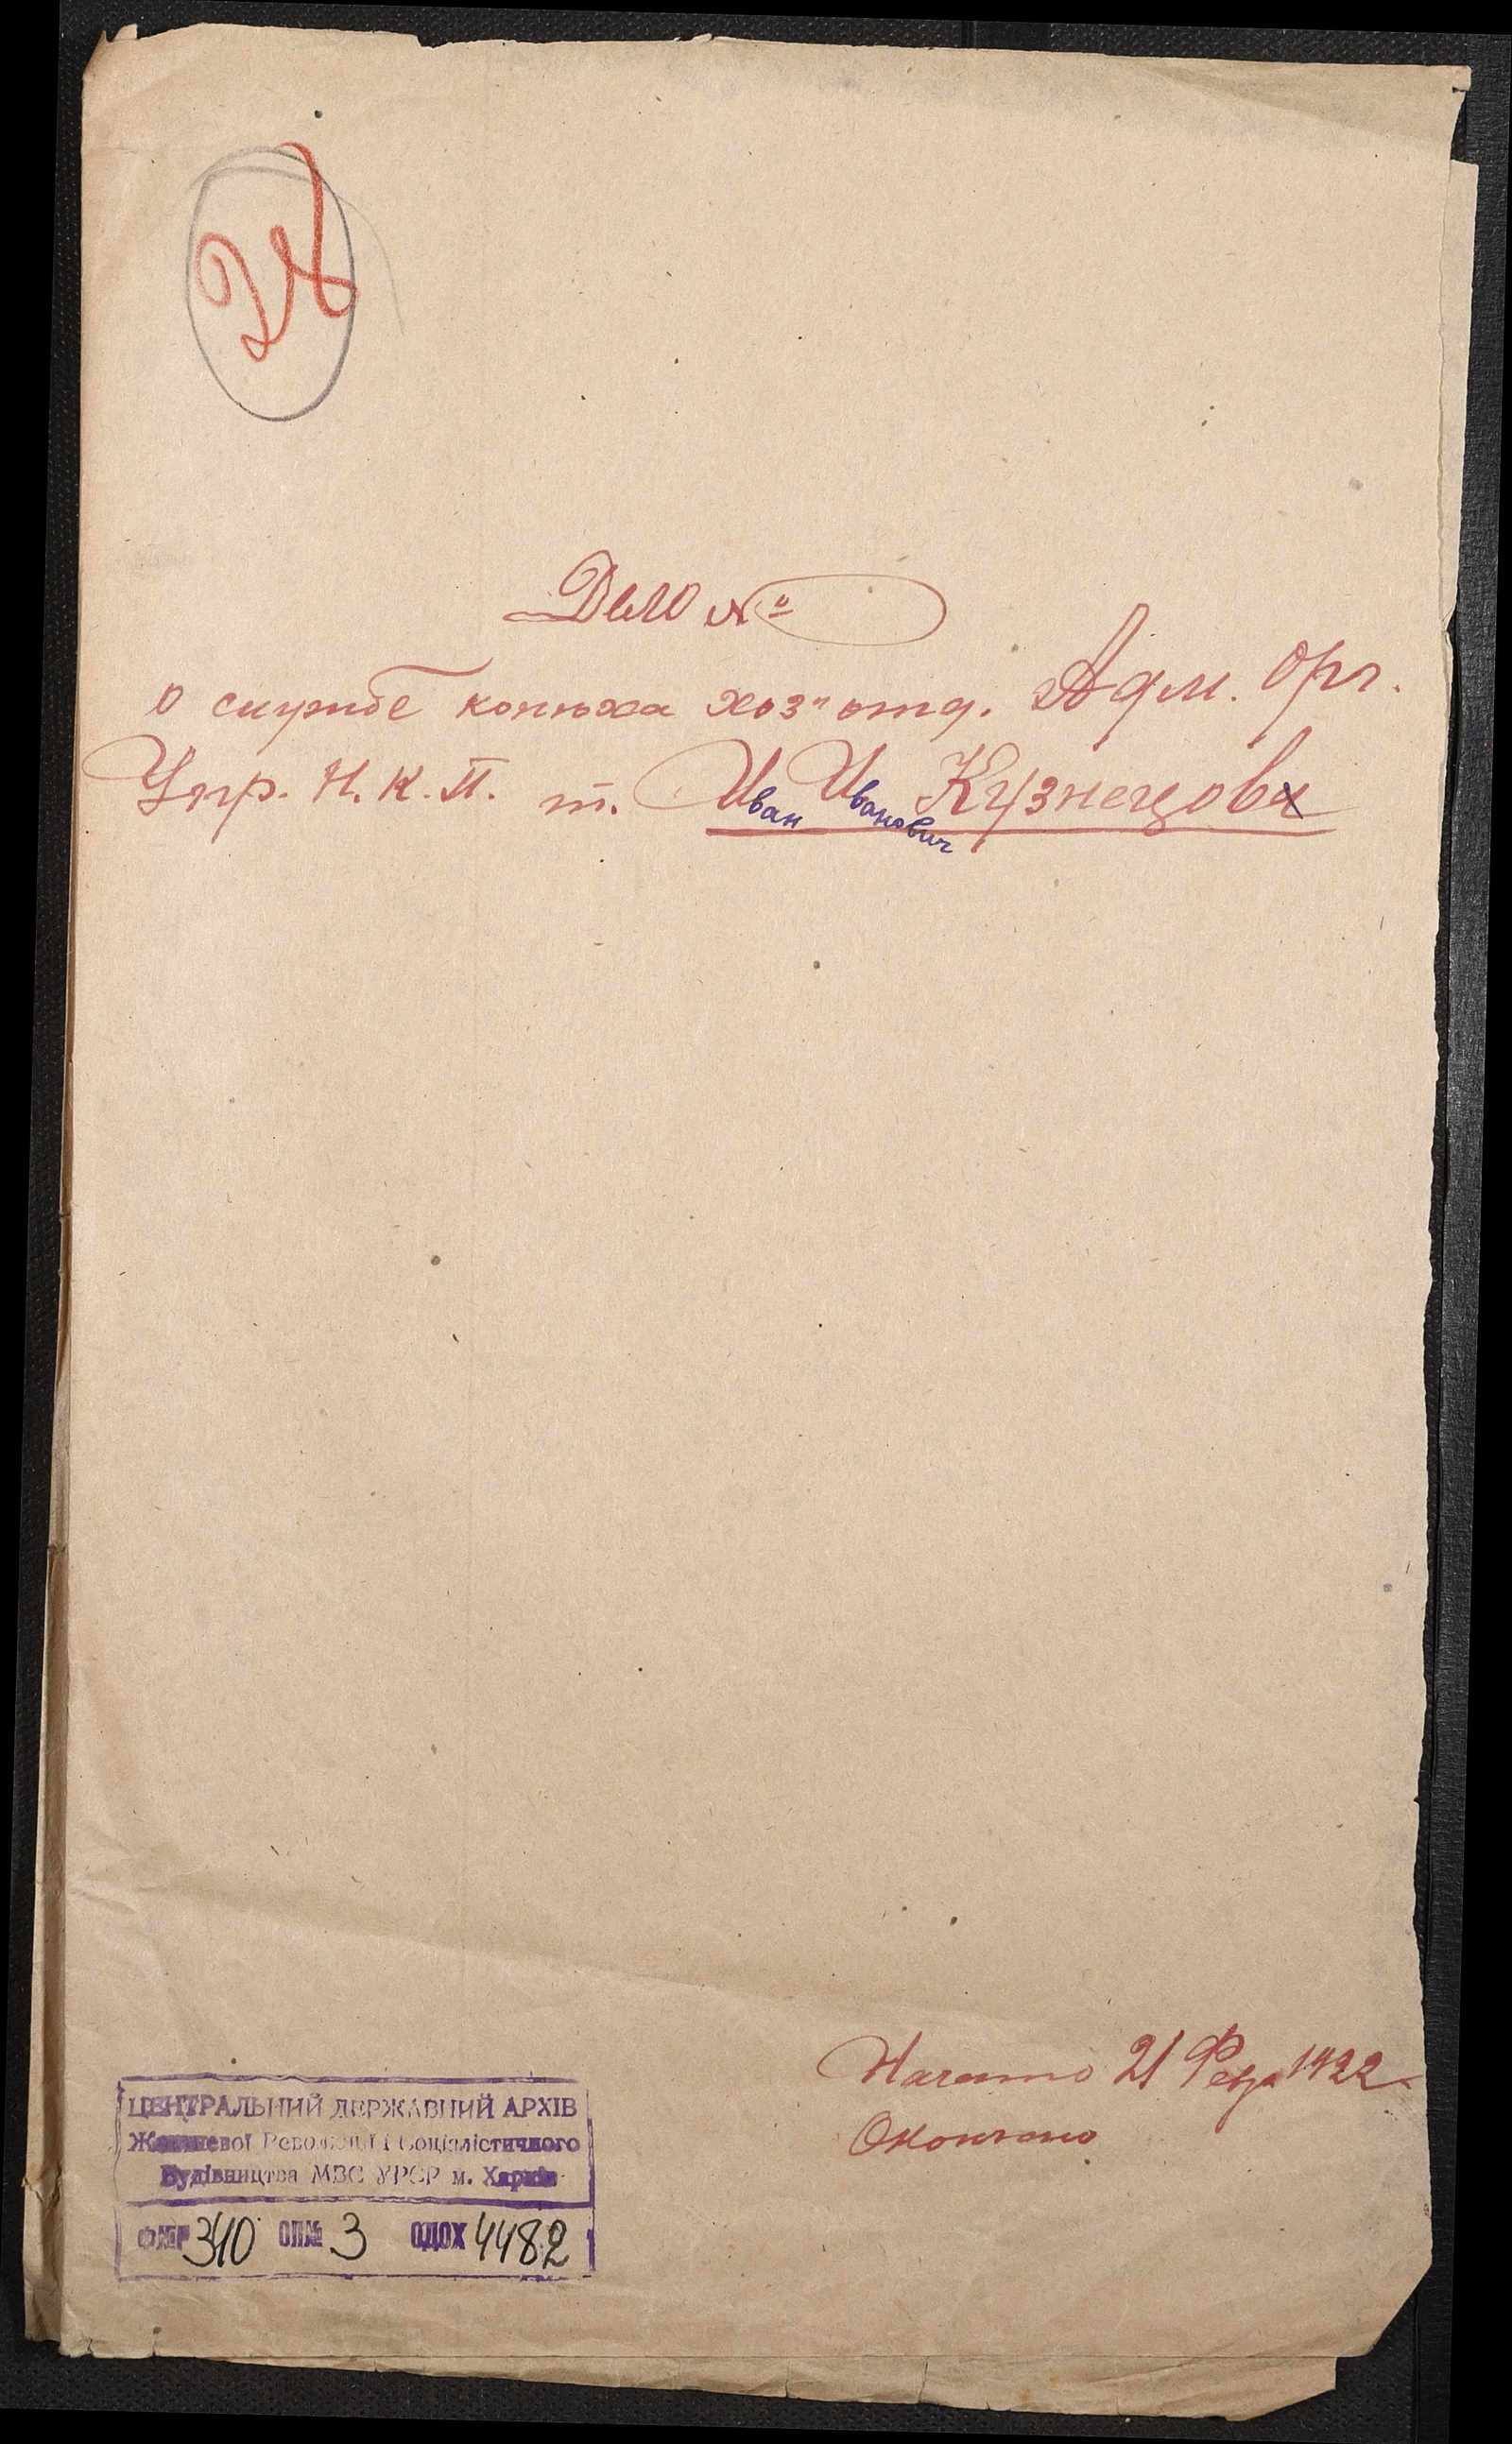 28
Дело №
о службе конюха хоз. отд. Адм. Орг.
Упр. Н. К. П. т. Иван Иванович Кузнецова
Начато 21 Февр 1922
Окончено
ЦЕНТРАЛЬНИЙ ДЕРЖАВНИЙ АРХІВ
Жовтневої Революції і Соціалістичного
Будівництва МВС УРСР м. Харків
Ф№Р 340 ОП№ 3 ОДОХ 4482